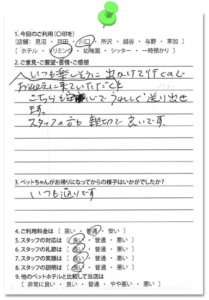 1.今回のご利用(○印を)
[店舗:見沼・戸田・川口・所沢・越谷・与野・草加]
[ホテル・トリミング・幼稚園・シッター・一時預かり]
2.ご意見・ご要望・苦情・ご感想
いつも楽しそうに出かけて行くので
お迎えに来ていただくと
こちらも安心してうれしく送り出せ
ます。
スタッフの方も親切で良いです。
3.ペットちゃんがお帰りになってからの様子はいかがでしたか?
いつも通りです
4.ご利用料金は [ 高い ・ 普通 ・ 安い ]
5.スタッフの対応は [ 良い ・ 普通 ・ 悪い ]
6.スタッフの礼節は [ 良い ・ 普通 ・ 悪い ]
7.スタッフの笑顔は [ 良い ・ 普通 ・ 悪い ]
8.スタッフの説明は [ 良い ・ 普通 ・ 悪い ]
9.他のペットホテルと比較して当店は
[非常に良い ・ 良い ・ 普通 ・ やや悪い ・ 悪い]